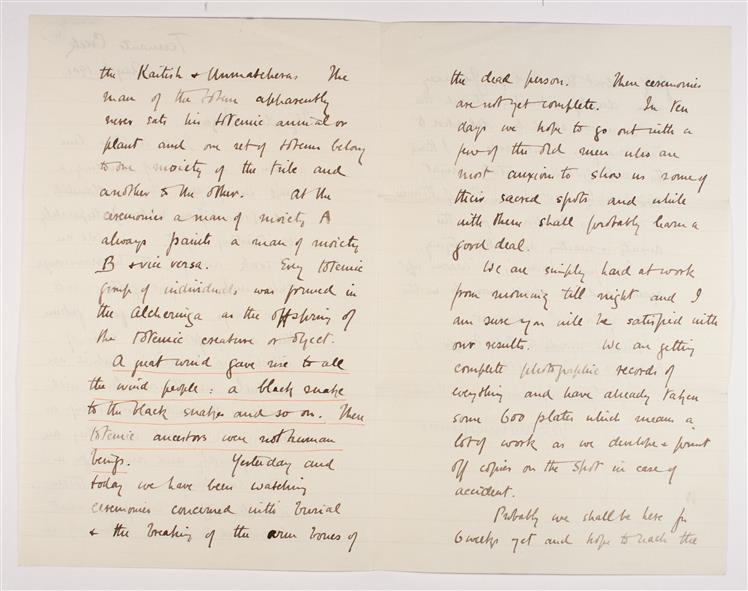 the Kaitish & Unmatcheras The
man of the totem apparently
never eats his totemic animal or
plant and one set of totems belong
to one moiety of the tribe and
another to the other. At the
ceremonies a man of moiety A
always paints a man of moiety
B & vice versa. Every totemic
group of individuals was formed in
the Alcheringa as the offspring of
the totemic creature or object.
A great wind gave rise to all
the wind people: a black snake
to the black snakes and so on. These
totemic ancestors were not human
beings. Yesterday and
today we have been watching
ceremonies concerned with burial
& the breaking of the arm bones of
the dead person. These ceremonies
are not yet complete. In ten
days we hope to go out with a
few of the old men who are
most anxious to show us some of
their sacred spots and while
with them shall probably learn a
good deal.
We are simply hard at work
from morning till night and I
am sure you will be satisfied with
our results. We are getting
complete photographic records of
everything and have already taken
some 600 plates which means a
lot of work as we develope & print
off copies on the spot in case of
accident.
Probably we shall be here for
6 weeks yet and hope to reach the